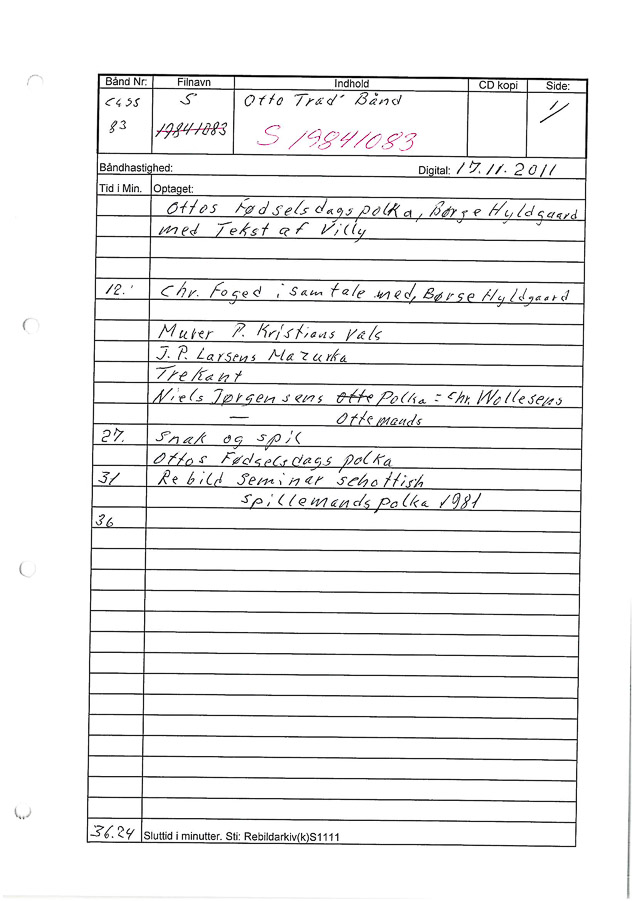 Bånd Nr: Filnavn Indhold CD kopi Side:
CASS S Otto Trad' Bånd 1/
83 19841083 S 19841083
Båndhastighed: Digital: 17.11.2011
Tid i Min. Optaget:
Ottos Fødselsdagspolka, Børge Hyldgaard
med Tekst af Villy
12. Chr. Foged i samtale med, Børge Hyldgaard
Murer P. Kristians vals
J.P. Larsens Mazurka
Trekant
Niels Jørgensens otte Polka = Chr. Wollesens
— Ottemands
27. Snak og spil
Ottos Fødselsdags polka
31 Rebild Seminar schottish
spillemandspolka 1981
36
36.24 Sluttid i minutter. Sti: Rebildarkiv(k)S1111